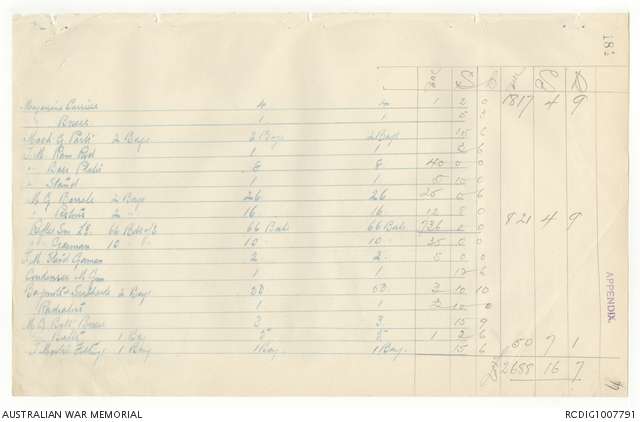 18
1817 4 9
Magazine Carrier 4 4 1 2 0
" Boxes 1 1
Mach G Parts 2 Bags 2 Bags 2 Bags
T.M. Ram Rod 1 1
" Base Plate 8 8 40 0 0
" Stand 1 1 5 10 0
M G Barrels 2 Bags 26 26 25 0 6
" 2 " 16 16 12 0
Rifles Sm L.E. 66 66 Bals 66 Bals 736 0 0
821 4 9
" German 10 10 10 25 0 0
T.M. German 2 2 5 0 0
Condenser M. Gun 1 1 12 6
Bayonets & Scabbards 2 Bags 50 50 3 10 10
1 1 2 10 0
M G Belt Boxes 3 3 15 9
" Belts 1 Bag 5 5 1 2 6
T Mortar Fitting 1 Bag 1 Bag. 1 Bag. 15 6
50 7 1
£ 2688 16 7
APPENDIX
AUSTRALIAN WAR MEMORIAL
RCDIG1007791